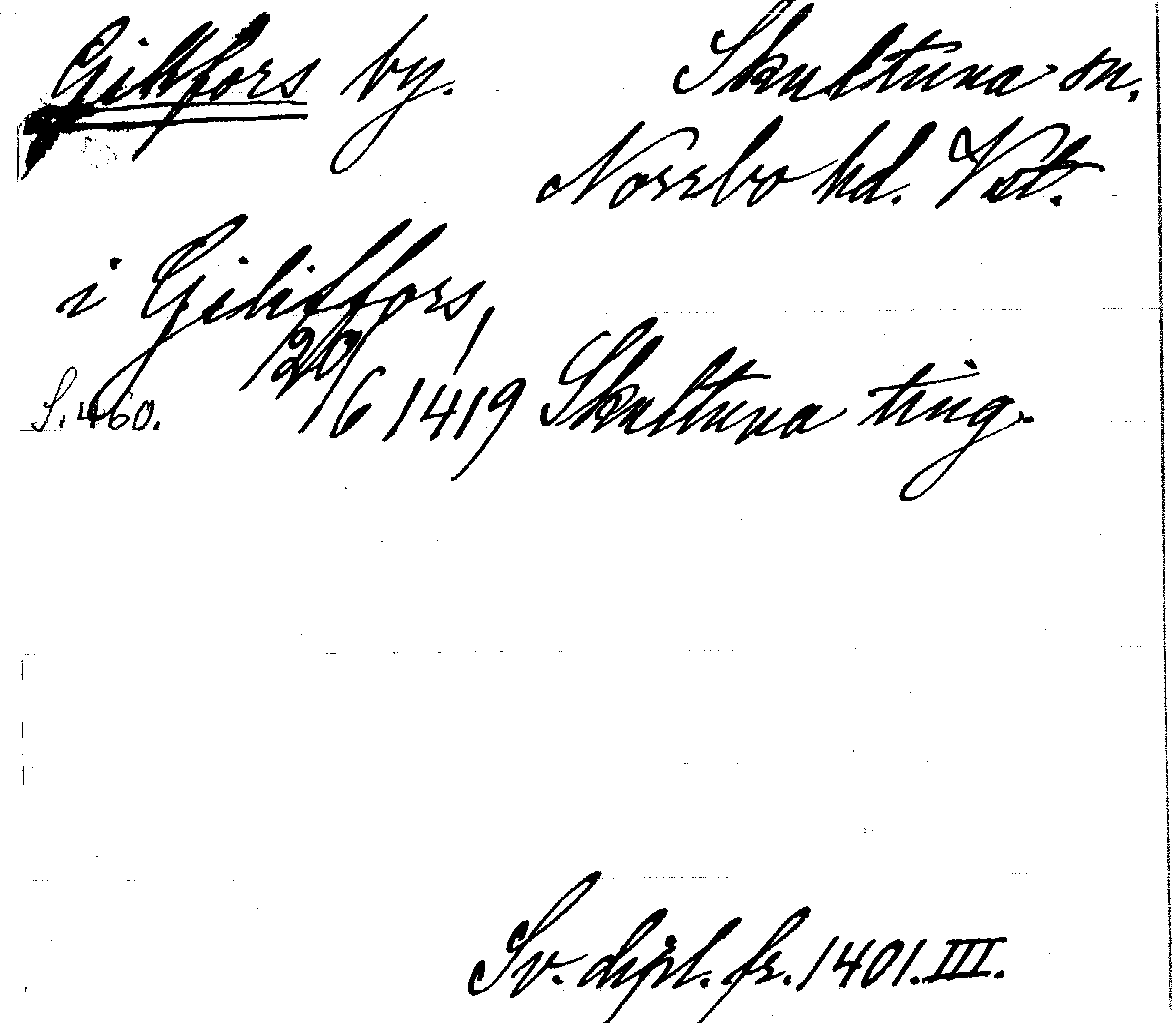 Gillfors by. Skultuna sn.
Norrbo hd. Vstl.
i Giliffors,
20/6 1419 Skultuna ting.
S. 460.
Sv. dipl. fr. 1401. III.